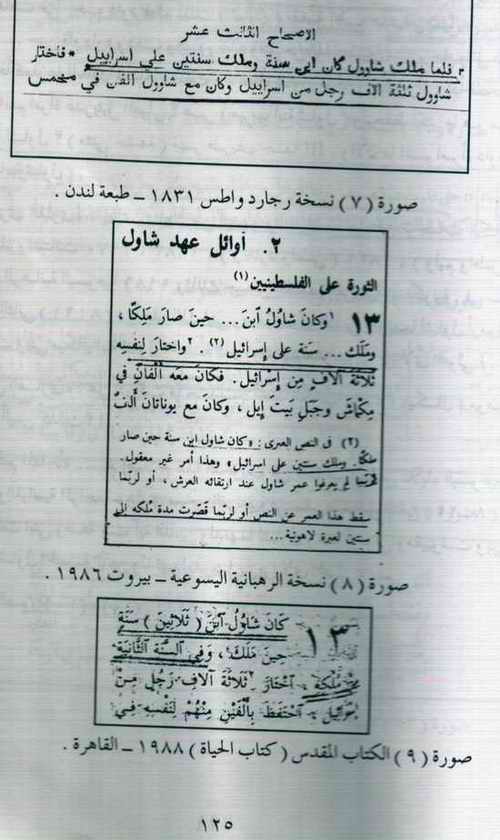 الاصحاح الثالث عشر
فلما ملك شاوول كان ابن سنة وملك سنتين على اسراييل * فاختار
شاوول ثلثة الاف رجل من اسراييل وكان مع شاوول الفن في مخمس
صورة ( ٧ ) نسخة رجارد واطس ١٨٣١ ـ طبعة لندن .
٢. أوائل عهد شاول
الثورة على الفلسطينيين (١)
١٣ ١وكان شاول ابن... حين صار ملكًا ،
وملك... سنة على إسرائيل (٢) . ٢واختار لنفسه
ثلاثة آلاف من إسرائيل. فكان معه ألفان في
مكماش وجبل بيت إيل ، وكان مع يوناتان ألف
(٢) في النص العبري : «كان شاول ابن سنة حين صار
ملكًا. وملك سنتين على اسرائيل» وهذا أمر غير معقول.
فربما لم يعرفوا عمر شاول عند ارتقائه العرش ، أو لربما
سقط هذا العمر عن النص أو لربما قصّرت مدة ملكه إلى
سنتين لعبرة لاهوتية...
صورة ( ٨ ) نسخة الرهبانية اليسوعية ـ بيروت ١٩٨٦ .
١٣ كان شاول ابن ( ثلاثين ) سنة
حين ملك ، وفي السنة الثانية
ملكه ٢اختار ثلاثة آلاف رجل من
احتفظ بألفين منهم لنفسه في
صورة ( ٩ ) الكتاب المقدس ( كتاب الحياة ) ١٩٨٨ ـ القاهرة .
١٢٥